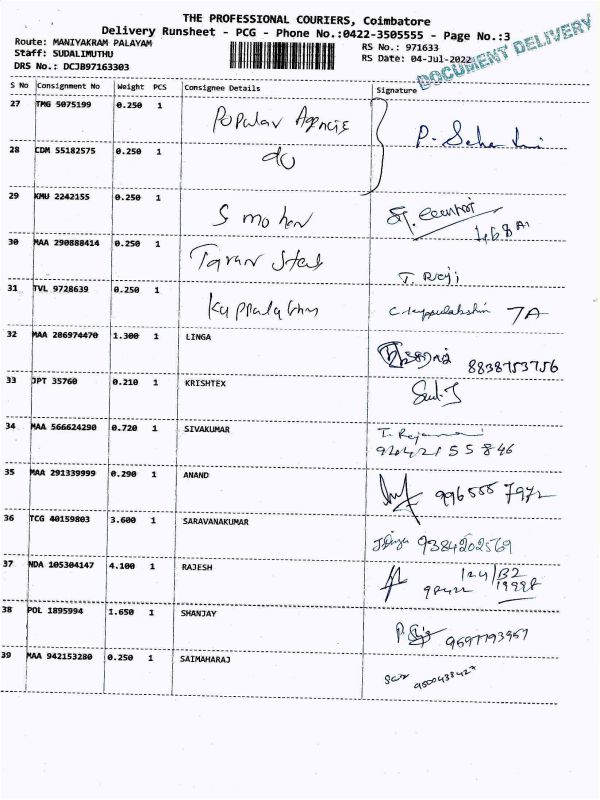 THE PROFESSIONAL COURIERS, Coimbatore
Delivery Runsheet - PCG - Phone No.:0422-3505555 - Page No.:3
Route: MANIYAKRAM PALAYAM
RS No.: 971633
Staff: SUDALIMUTHU
RS Date: 04-Jul-2022
DRS No.: DCJB97163303
DOCUMENT DELIVERY
S No Consignment No Weight PCS Consignee Details Signature
27 TMG 5075199 0.250 1 Popular Agencies
28 CDM 55182575 0.250 1 do
29 KMU 2242155 0.250 1 S mohan
30 MAA 290888414 0.250 1 T. Raji
31 TVL 9728639 0.250 1 7A
32 MAA 286974470 1.300 1 LINGA 8838753756
33 JPT 35760 0.210 1 KRISHTEX
34 MAA 566624290 0.720 1 SIVAKUMAR
35 MAA 291339999 0.290 1 ANAND 996555 7972
36 TCG 40159803 3.600 1 SARAVANAKUMAR 9384202569
37 NDA 105304147 4.100 1 RAJESH
38 POL 1895994 1.650 1 SHANJAY
39 MAA 942153280 0.250 1 SAIMAHARAJ